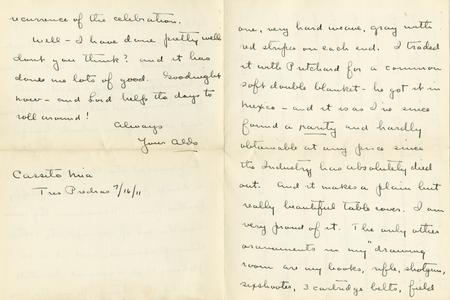 recurrence of the celebration.
Well – I have done pretty well
dont you think? and it has
done me lots of good. Goodnight
now – and Lord help the days to
roll around!
Always
Your Aldo
Cassito mia
Tres Piedras 7/16/11
one, very hard weave, gray with
red stripes on each end. I traded
it with Pritchard for a common
soft double blanket – he got it in
Mexico – and it is as I've since
found a rarity and hardly
obtainable at any price since
the Industry has absolutely died
out. And it makes a plain but
really beautiful table cover. I am
very proud of it. The only other
ornaments in my "drawing
room are my books, rifle, shotgun,
sixshooter, 3 cartridge belts, field